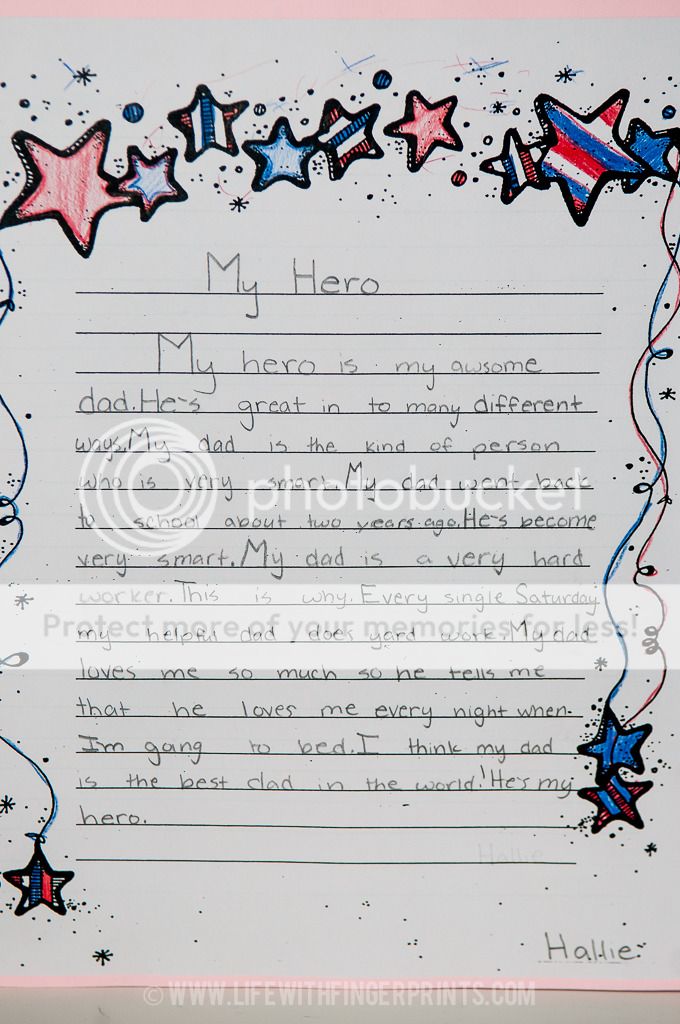 My Hero
My hero is my awsome
dad. He's great in to many different
ways. My dad is the kind of person
who is very smart. My dad went back
to school about two years ago. He's become
very smart. My dad is a very hard
worker. This is why. Every single Saturday
my helpful dad does yard work. My dad
loves me so much so he tells me
that he loves me every night when
I'm gang to bed. I think my dad
is the best dad in the world! He's my
hero.
Hallie
Hallie
photobucket
Protect more of your memories for less!
© WWW.LIFEWITHFINGERPRINTS.COM